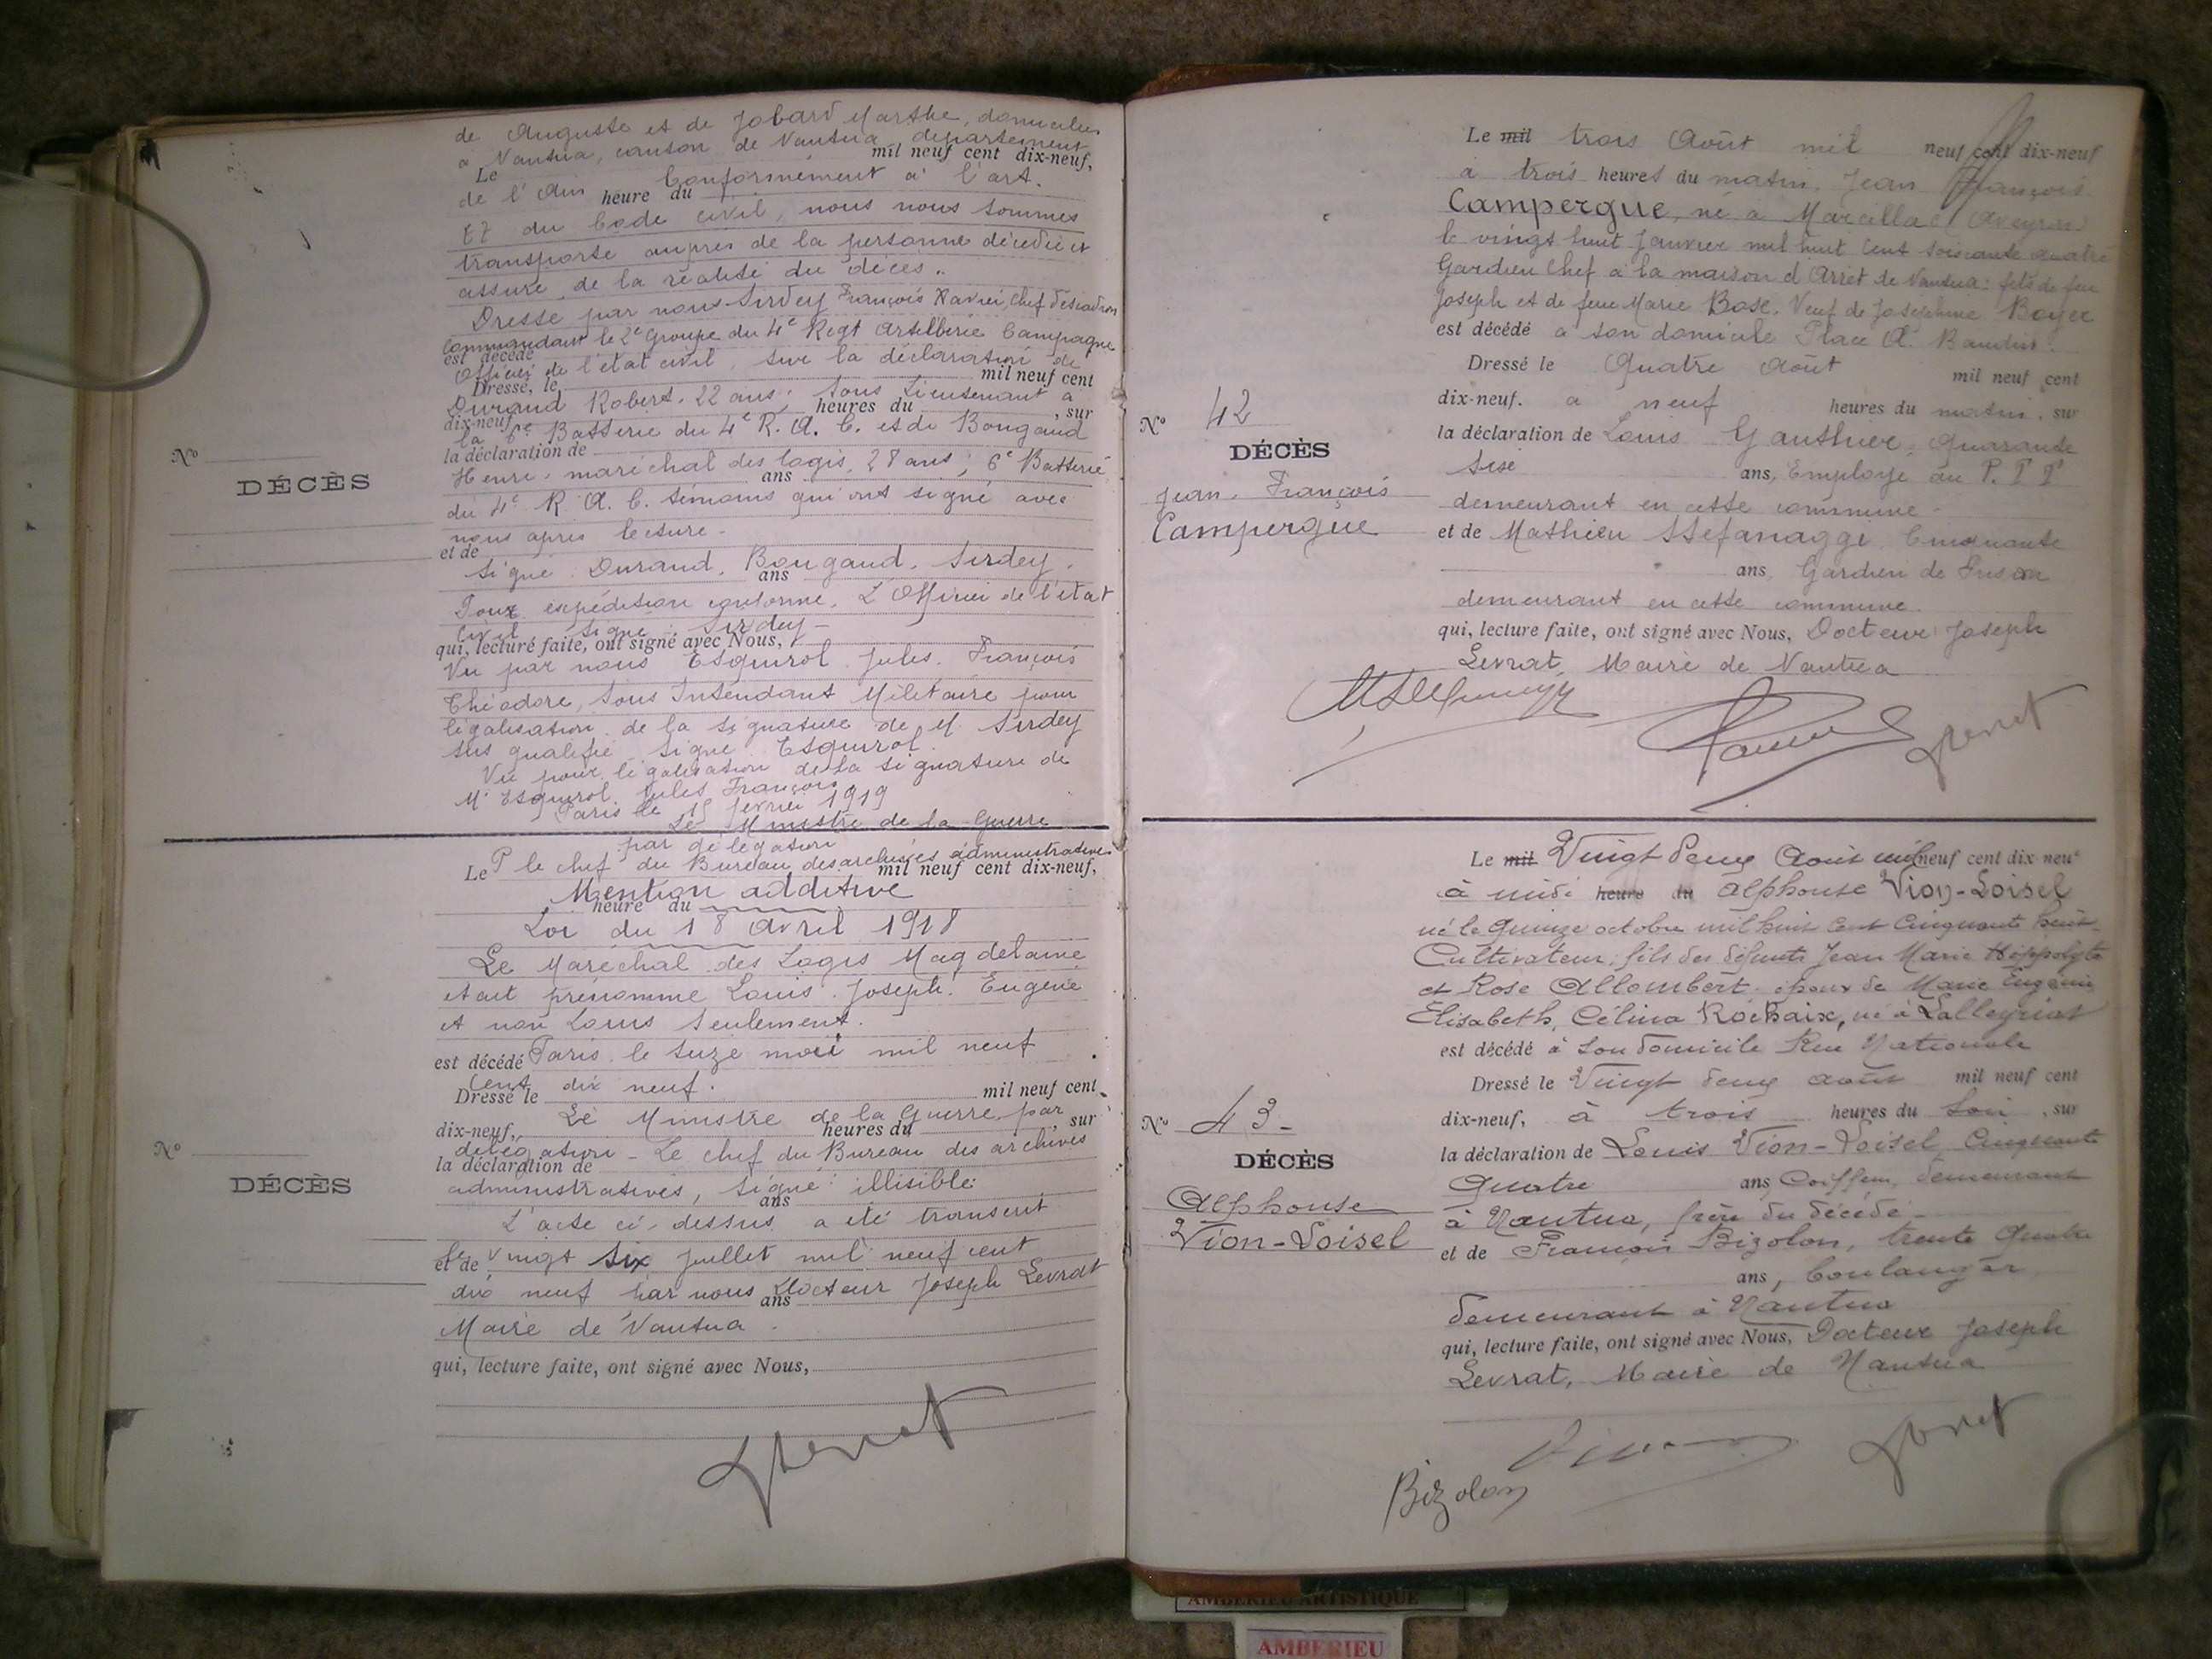 de Auguste et de Jobard Marthe, domiciliés
a Nantua, canton de Nantua departement
Le mil neuf cent dix-neuf,
de l'Ain Conformément à l'art.
heure du
77 du Code civil, nous nous sommes
transporté auprès de la personne décédée et
assuré de la réalité du décès..
Dressé par nous Sirdey François Xavier, chef d'escadron
Commandant le 2e Groupe du 4e Regt Artillerie Campagne
est décédé
Officier de l'état civil, sur la déclaration de
Dressé, le mil neuf cent
Durand Robert. 22 ans, Sous Lieutenant a
dix-neuf heures du , sur
la 6e Batterie du 4e R. A. C. et de Bougaud
la déclaration de
Henri, maréchal des logis, 28 ans, 6e Batterie
ans
du 4e R. A. C. témoins qui ont signé avec
nous apres lecture.
et de
Signé Durand, Bougaud, Sirdey.
ans
Pour expédition conforme, L'Officier de l'état
civil signé Sirdey
qui, lecture faite, ont signé avec Nous,
Vu par nous Esquirol Jules François
Théodore, Sous Intendant Militaire pour
légalisation de la signature de M Sirdey
sus qualifié signé Esquirol.
Vu pour légalisation de la signature de
Mr Esquirol Jules François
Paris le 15 fevrier 1919
Le Ministre de la Guerre
par délégation
Le P le chef du Bureau des archives administratives
mil neuf cent dix-neuf,
Mention additive
heure du
Loi du 18 Avril 1918
Le Maréchal des Logis Magdelaine
etait prénommé Louis Joseph Eugène
et non Louis seulement.
est décédé Paris le seize mai mil neuf
cent dix neuf.
Dressé le mil neuf cent
Le Ministre de la Guerre, par
dix-neuf, heures du , sur
délégation - Le chef du Bureau des archives
la déclaration de
administratives, signé: illisible
ans
L'acte ci-dessus a été transcrit
le vingt six Juillet mil neuf cent
et de
dix neuf par nous Docteur Joseph Levrat
ans
Maire de Nantua.
qui, lecture faite, ont signé avec Nous,
No
DÉCÈS
No
DÉCÈS
Le mil trois Août mil neuf cent dix-neuf
à trois heures du matin, Jean François
Campergue, né à Marcillac (Aveyron)
le vingt huit Janvier mil huit cent soixante quatre
Gardien Chef à la maison d'Arret de Nantua: fils de feu
Joseph et de feue Marie Bose. Veuf de Joséphine Boyer
est décédé a son domicile Place A. Baudin.
Dressé le Quatre Août mil neuf cent
dix-neuf. a neuf heures du matin, sur
la déclaration de Louis Gauthier, quarante
Sise ans, Employé au P. T T
demeurant en cette commune.
et de Mathieu Stefanaggi Cinquante
ans, Gardien de Prison
demeurant en cette commune.
qui, lecture faite, ont signé avec Nous, Docteur Joseph
Levrat, Maire de Nantua
No 42
DÉCÈS
Jean François
Campergue
Le mil Vingt deux Août mil neuf cent dix-neuf
à midi heure du Alphonse Vion-Loisel
né le quinze octobre mil huit cent cinquante huit
Cultivateur, fils des défunts Jean Marie Hippolyte
et Rose Allombert, époux de Marie Eugénie
Elisabeth, Célina Rochaix, né à Lalleyriat
est décédé à son domicile Rue Nationale
Dressé le Vingt deux août mil neuf cent
dix-neuf, à trois heures du Soir, sur
la déclaration de Louis Vion-Loisel Cinquante
Quatre ans, Coiffeur, demeurant
à Nantua, frère du décédé
et de François Bizolon, trente Quatre
ans, boulanger
demeurant à Nantua
qui, lecture faite, ont signé avec Nous, Docteur Joseph
Levrat, Maire de Nantua
Bizolon
No 43
DÉCÈS
Alphonse
Vion-Loisel
AMBERIEU ARTISTIQUE
AMBERIEU